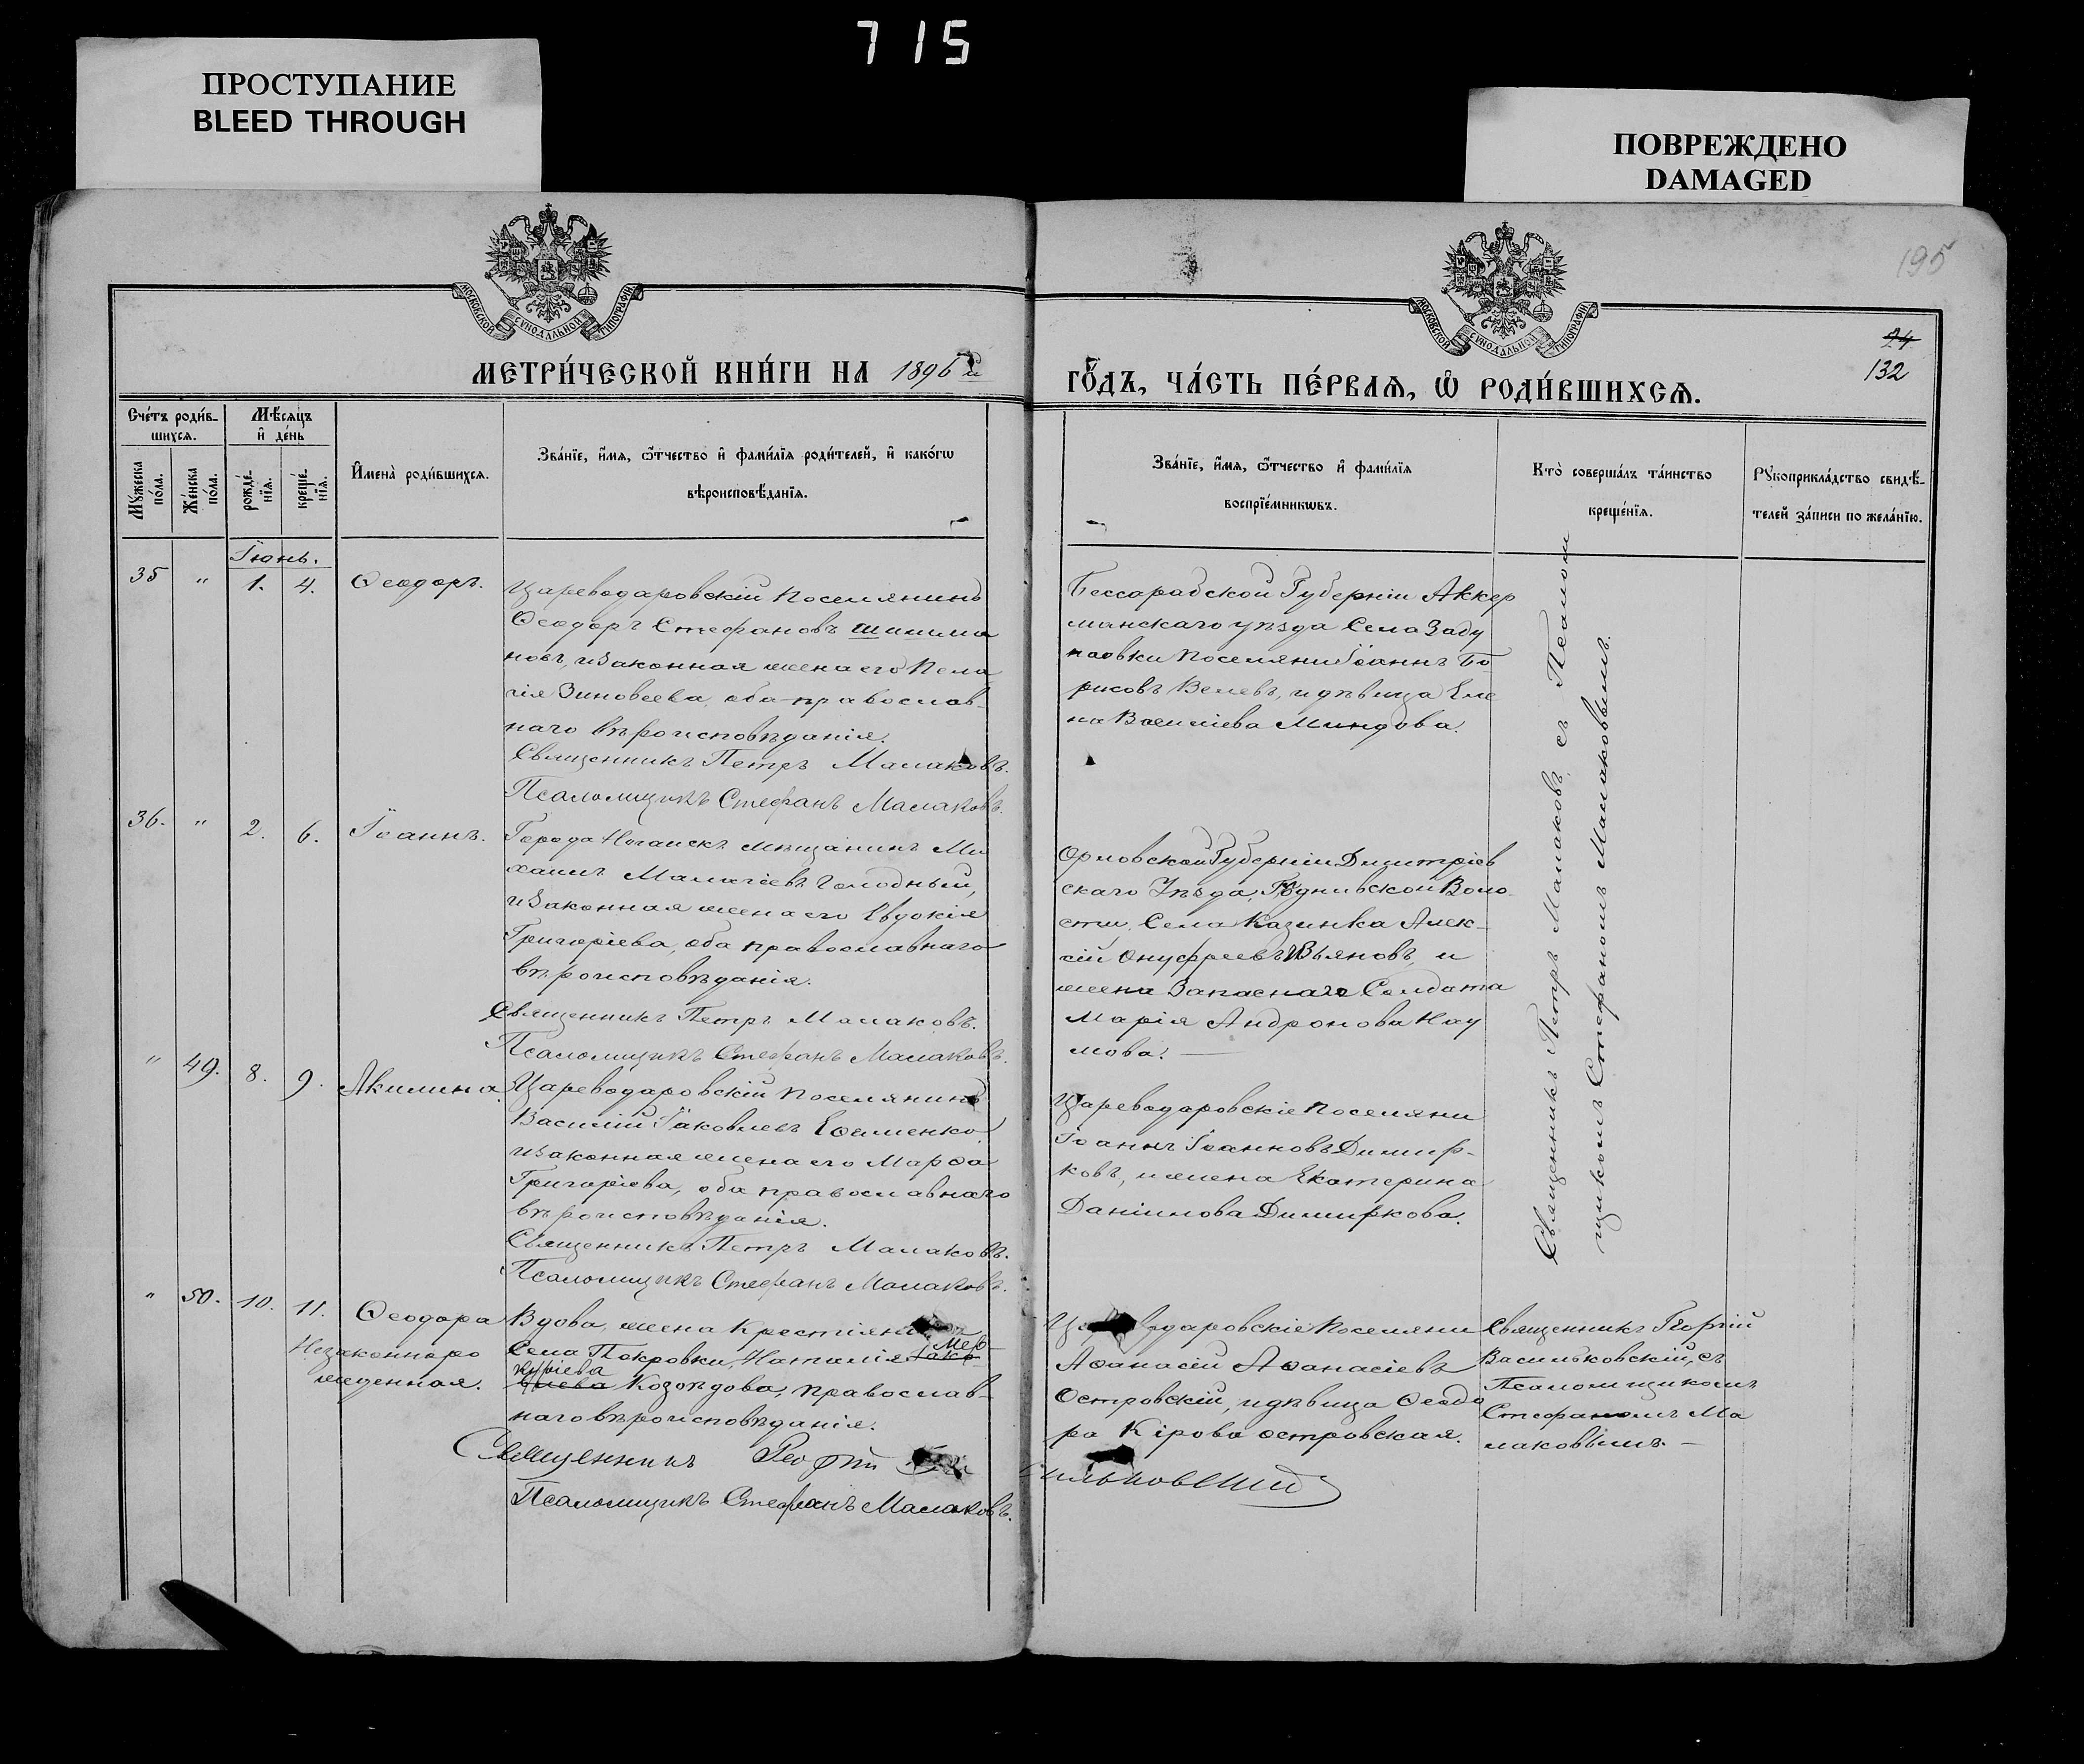 715
ПРОСТУПАНИЕ
BLEED THROUGH
ПОВРЕЖДЕНО
DAMAGED
195
МОСКОВСКОЙ СѴНОДАЛЬНОЙ ТИПОГРАФІИ
МОСКОВСКОЙ СѴНОДАЛЬНОЙ ТИПОГРАФІИ
24
132
МЕТРИ́ЧЕСКОЙ КНИ́ГИ НА 1896 й
ГО́ДЪ, ЧА́СТЬ ПЕ́РВАЯ, Ѡ РОДИ́ВШИХСЯ.
Сче́тъ роди́в-
шихся.
Мѣ́сяцъ
и де́нь
Мꙋжеска по́ла.
Же́нска по́ла.
рожде́-нїя.
креще́-нїя.
И҆мена̀ роди́вшихся.
Зва́нїе, и҆́мя, ѻ҆́тчество и҆ фами́лїя роди́телей, и҆ како́гѡ
вѣроисповѣ́данїя.
Зва́нїе, и҆́мя, ѻ҆́тчество и҆ фами́лїя
воспрїе́мникѡвъ.
Кто̀ соверша́лъ та́инство
креще́нїя.
Рꙋкоприкла́дство свидѣ́-
телей за́писи по жела́нїю.
Іюнь.
35 " 1. 4. Ѳеодоръ.
Цареводаровскій поселянинъ
Ѳеодоръ Стефановъ Шишма
новъ, и законная жена его Пела
гія Зиновеева, оба православ-
наго вѣроисповѣданія.
Священникъ Петръ Малаковъ.
Псаломщикъ Стефанъ Малаковъ.
Бессарабской Губерніи Аккер
манскаго уѣзда Села Заду
наовки поселяни Іоаннъ Бо
рисовъ Велевъ, и дѣвица Еле
на Василіева Миндова.
Священникъ Петръ Малаковъ съ Псалом
щикомъ Стефаномъ Малаковымъ.
36. " 2. 6. Іоаннъ.
Города Ногайскъ мѣщанинъ Ми
хаилъ Малахіевъ Голодный,
и законная жена его Евдокія
Григоріева, оба православнаго
вѣроисповѣданія.
Священникъ Петръ Малаковъ.
Псаломщикъ Стефанъ Малаковъ.
Орловской Губерніи Димитріев
скаго Уѣзда, Воло-
сти, Села Казинка Алек-
сій Онуфреевъ и
жена Запаснаго Солдата
Марія Андронова Нау
мова.
" 49. 8. 9. Акилина.
Цареводаровскій поселянинъ
Василій Іаковлевъ Еѳименко,
и законная жена его Марѳа
Григоріева, оба православнаго
вѣроисповѣданія.
Священникъ Петръ Малаковъ.
Псаломщикъ Стефанъ Малаковъ.
Цареводаровскіе поселяни
Іоаннъ Іоанновъ Димир-
ковъ, и жена Екатерина
Даніилова Димиркова.
" 50. 10. 11. Ѳеодора
Незаконноро
жденная.
Вдова, жена Крестіяни
Села Покровки, Наталія Іако Мер-
влева куріева Козоѣдова, православ-
наго вѣроисповѣданія.
Священникъ Георгій
Псаломщикъ Стефанъ Малаковъ.
даровскіе поселяни
Аѳанасій Аѳанасіевъ
Островскій, и дѣвица Ѳеодо
ра Кірова Островская.
сильковскій
Священникъ Георгій
Васильковскій, съ
Псаломщикомъ
Стефаномъ Ма
лаковымъ.